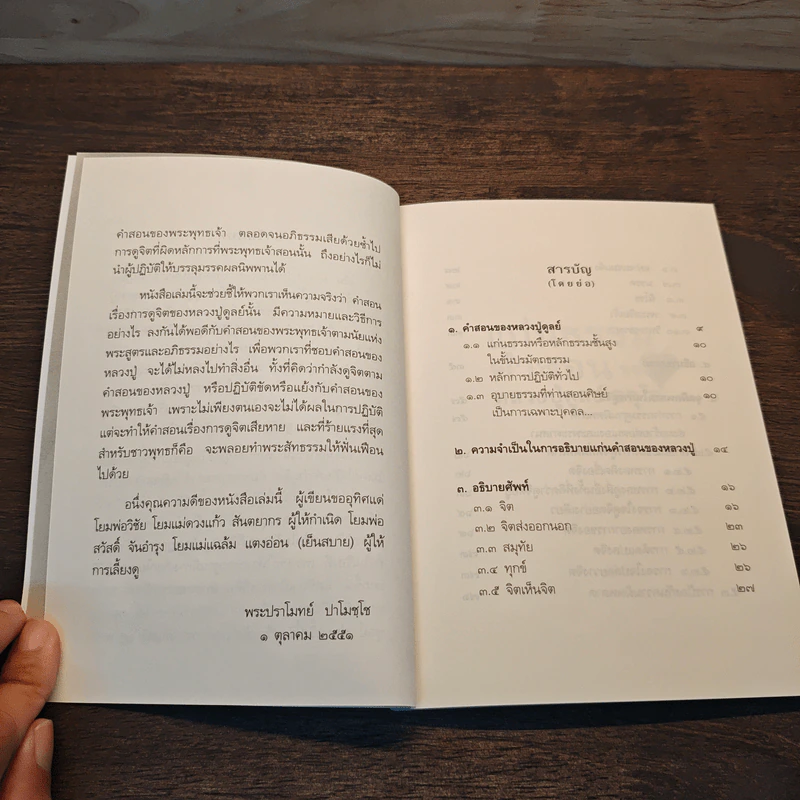 คำสอนของพระพุทธเจ้า ตลอดจนอภิธรรมเสียด้วยซ้ำไป
การดูจิตที่ผิดหลักการที่พระพุทธเจ้าสอนนั้น ถึงอย่างไรก็ไม่
นำผู้ปฏิบัติให้บรรลุมรรคผลนิพพานได้
หนังสือเล่มนี้จะช่วยชี้ให้พวกเราเห็นความจริงว่า คำสอน
เรื่องการดูจิตของหลวงปู่ดูลย์นั้น มีความหมายและวิธีการ
อย่างไร ลงกันได้พอดีกับคำสอนของพระพุทธเจ้าตามนัยแห่ง
พระสูตรและอภิธรรมอย่างไร เพื่อพวกเราที่ชอบคำสอนของ
หลวงปู่ จะได้ไม่หลงไปทำสิ่งอื่น ทั้งที่คิดว่ากำลังดูจิตตาม
คำสอนของหลวงปู่ หรือปฏิบัติขัดหรือแย้งกับคำสอนของ
พระพุทธเจ้า เพราะไม่เพียงตนเองจะไม่ได้ผลในการปฏิบัติ
แต่จะทำให้คำสอนเรื่องการดูจิตเสียหาย และที่ร้ายแรงที่สุด
สำหรับชาวพุทธก็คือ จะพลอยทำพระสัทธรรมให้ฟั่นเฟือน
ไปด้วย
อนึ่งคุณความดีของหนังสือเล่มนี้ ผู้เขียนขออุทิศแด่
โยมพ่อวิชัย โยมแม่ดวงแก้ว สันตยากร ผู้ให้กำเนิด โยมพ่อ
สวัสดิ์ จันอำรุง โยมแม่แฉล้ม แตงอ่อน (เย็นสบาย) ผู้ให้
การเลี้ยงดู
พระปราโมทย์ ปาโมชฺโช
๑ ตุลาคม ๒๕๕๑
สารบัญ
(โดยย่อ)
๑. คำสอนของหลวงปู่ดูลย์ ๙
๑.๑ แก่นธรรมหรือหลักธรรมชั้นสูง ๑๐
ในขั้นปรมัตถธรรม
๑.๒ หลักการปฏิบัติทั่วไป ๑๐
๑.๓ อุบายธรรมที่ท่านสอนศิษย์ ๑๐
เป็นการเฉพาะบุคคล...
๒. ความจำเป็นในการอธิบายแก่นคำสอนของหลวงปู่ ๑๔
๓. อธิบายศัพท์ ๑๖
๓.๑ จิต ๑๖
๓.๒ จิตส่งออกนอก ๒๓
๓.๓ สมุทัย ๒๖
๓.๔ ทุกข์ ๒๖
๓.๕ จิตเห็นจิต ๒๗